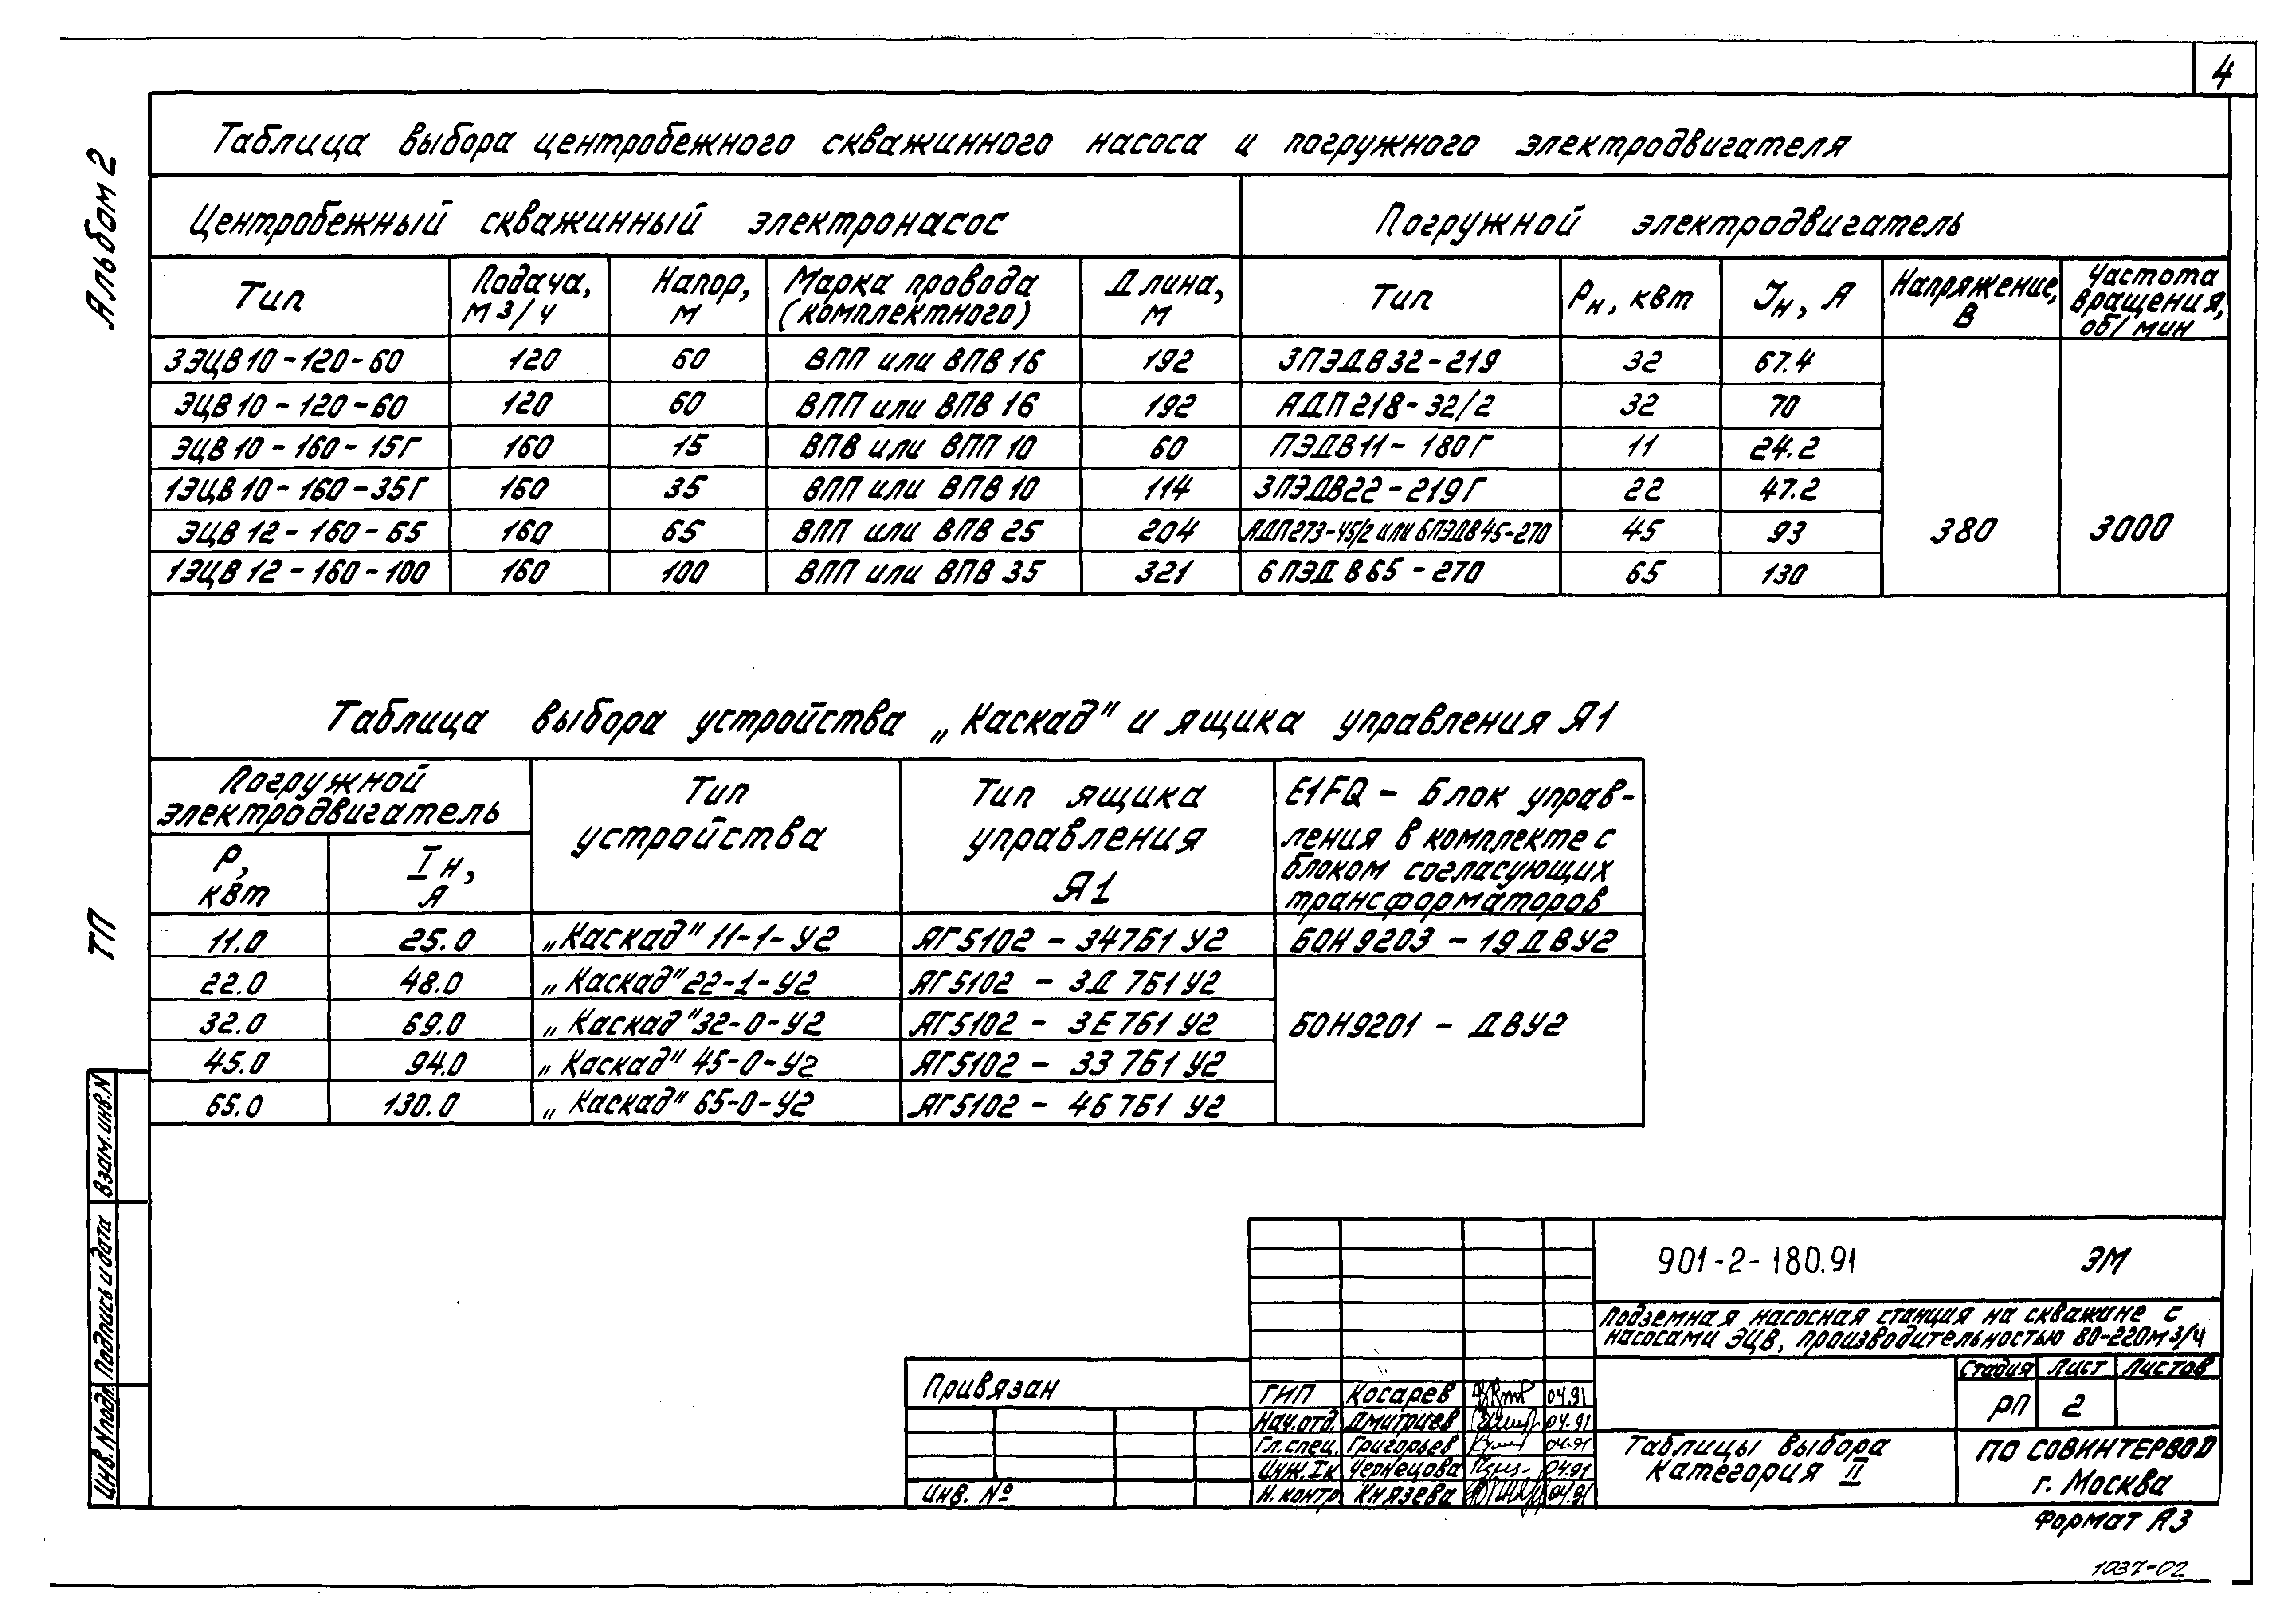 4
Альбом 2
Таблица выбора центробежного скважинного насоса и погружного электродвигателя
Центробежный скважинный электронасос Погружной электродвигатель
Тип Подача, м3/ч Напор, м Марка провода (комплектного) Длина, м Тип Рн, квт Iн, А Напряжение, В Частота вращения, об/мин
3ЭЦВ10-120-60 120 60 ВПП или ВПВ 16 192 3ПЭДВ32-219 32 67.4
ЭЦВ10-120-60 120 60 ВПП или ВПВ 16 192 АДП218-32/2 32 70
ЭЦВ10-160-15Г 160 15 ВПВ или ВПП 10 60 ПЭДВ11-180Г 11 24.2
1ЭЦВ10-160-35Г 160 35 ВПП или ВПВ 10 114 3ПЭДВ22-219Г 22 47.2
ЭЦВ12-160-65 160 65 ВПП или ВПВ 25 204 АДП273-45/2 или 6ПЭДВ45-270 45 93 380 3000
1ЭЦВ12-160-100 160 100 ВПП или ВПВ 35 321 6ПЭДВ65-270 65 130
Таблица выбора устройства „Каскад" и ящика управления Я1
Погружной электродвигатель
Р, квт
Iн, А
Тип устройства
Тип ящика управления Я1
E1FQ - Блок управ-
ления в комплекте с
блоком согласующих
трансформаторов
11.0 25.0 „Каскад" 11-1-У2 ЯГ5102-3476 1У2 БОН9203-19ДВУ2
22.0 48.0 „Каскад" 22-1-У2 ЯГ5102-3Д 761У2
32.0 69.0 „Каскад" 32-0-У2 ЯГ5102-3Е 761 У2 БОН9201-ДВУ2
45.0 94.0 „Каскад" 45-0-У2 ЯГ5102-33 761 У2
65.0 130.0 „Каскад" 65-0-У2 ЯГ5102-46 761 У2
ТП
Взам.инв.N
Подпись и дата
Инв.Nподл.
901-2-180.91 ЭМ
Подземная насосная станция на скважине с
насосами ЭЦВ, производительностью 80-220м3/ч
Стадия Лист Листов
РП 2
Таблицы выбора
категория II
ПО СОВИНТЕРВОД
г. Москва
Привязан
Инв. №
ГИП Косарев 04.91
Нач.отд. Дмитриев 04.91
Гл.спец. Григорьев 04.91
Инж.Iк Чернецова 04.91
Н.контр Князева 04.91
Формат А3
1037-02